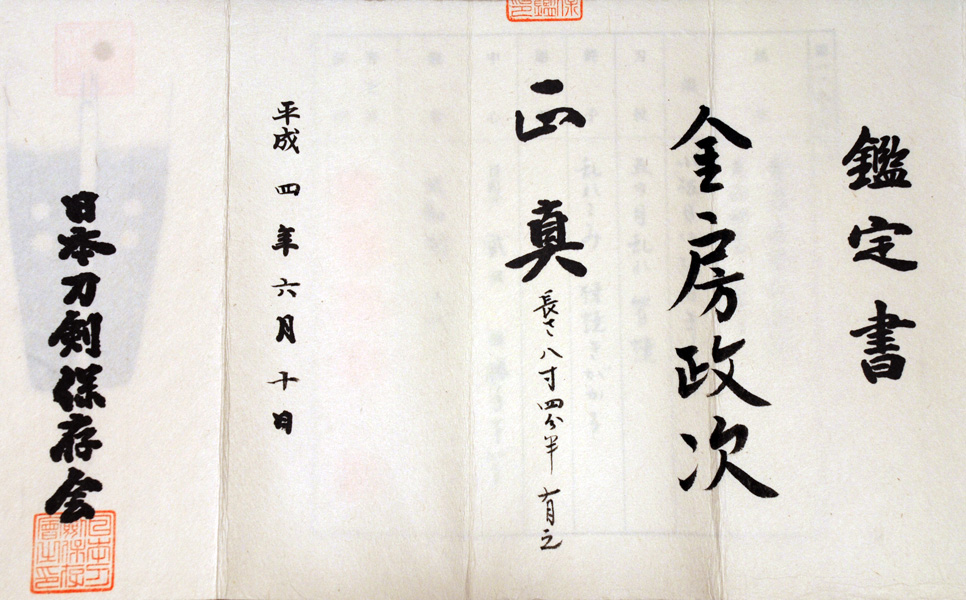 鑑定書
金房政次
正真
長さ八寸四分半 有之
平成四年六月十日
日本刀剣保存会